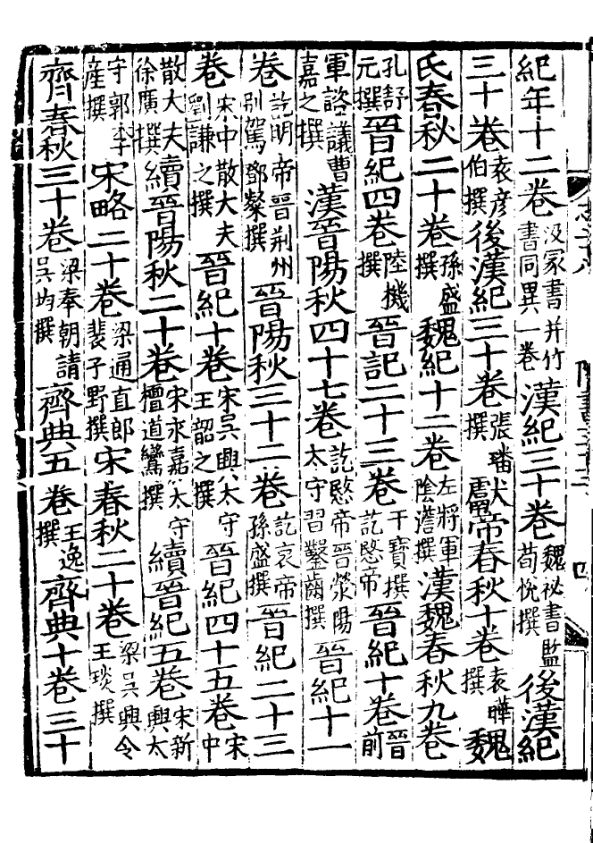 紀年十二卷汲冢書并竹書同異一卷漢紀三十卷魏祕書監荀悅撰後漢紀
三十卷袁彦伯撰後漢紀三十卷張璠撰獻帝春秋十卷袁曄撰魏
氏春秋二十卷孫盛撰魏紀十二卷左將軍陰澹撰漢魏春秋九卷
孔舒元撰晉紀四卷陸機撰晉記二十三卷干寶撰訖愍帝晉紀十卷晉前
軍諮議曹嘉之撰漢晉陽秋四十七卷訖愍帝晉滎陽太守習鑿齒撰晉紀十一
卷訖明帝晉荆州別駕鄧粲撰晉陽秋三十二卷訖哀帝孫盛撰晉紀二十三
卷宋中散大夫劉謙之撰晉紀十卷宋吳興太守王韶之撰晉紀四十五卷宋中
散大夫徐廣撰續晉陽秋二十卷宋永嘉太守檀道鸞撰續晉紀五卷宋新興太
守郭李産撰宋略二十卷梁通直郎裴子野撰宋春秋二十卷梁吳興令王琰撰
齊春秋三十卷梁奉朝請吳均撰齊典五卷王逸撰齊典十卷三十